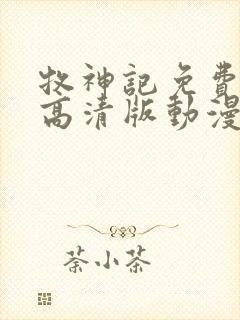 牧神記免費
高清版動漫
荼小茶